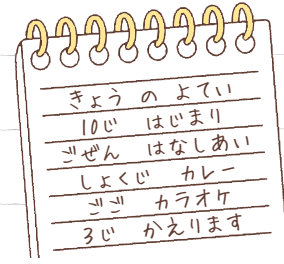 きょう の よてい
10じ はじまり
ごぜん はなしあい
しょくじ カレー
ごご カラオケ
3じ かえります